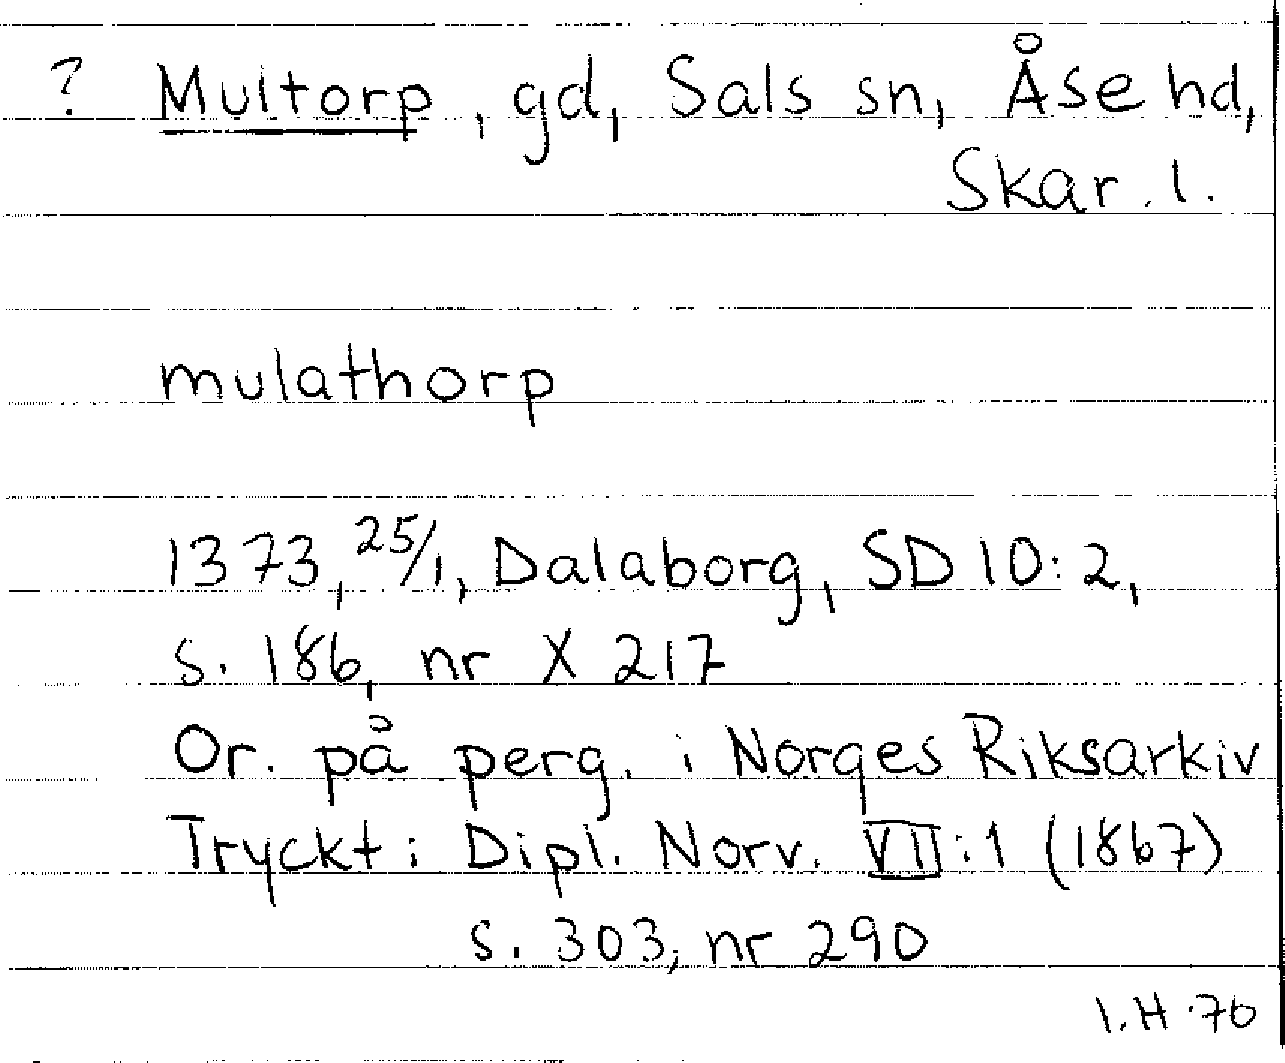 ? Multorp, gd, Sals sn, Åse hd,
Skar. l.
mulathorp
1373, 25/1, Dalaborg, SD 10:2,
s. 186, nr X 217
Or. på perg. i Norges Riksarkiv
Tryckt i Dipl. Norv. VII:1 (1867)
s. 303, nr 290
I.H 76